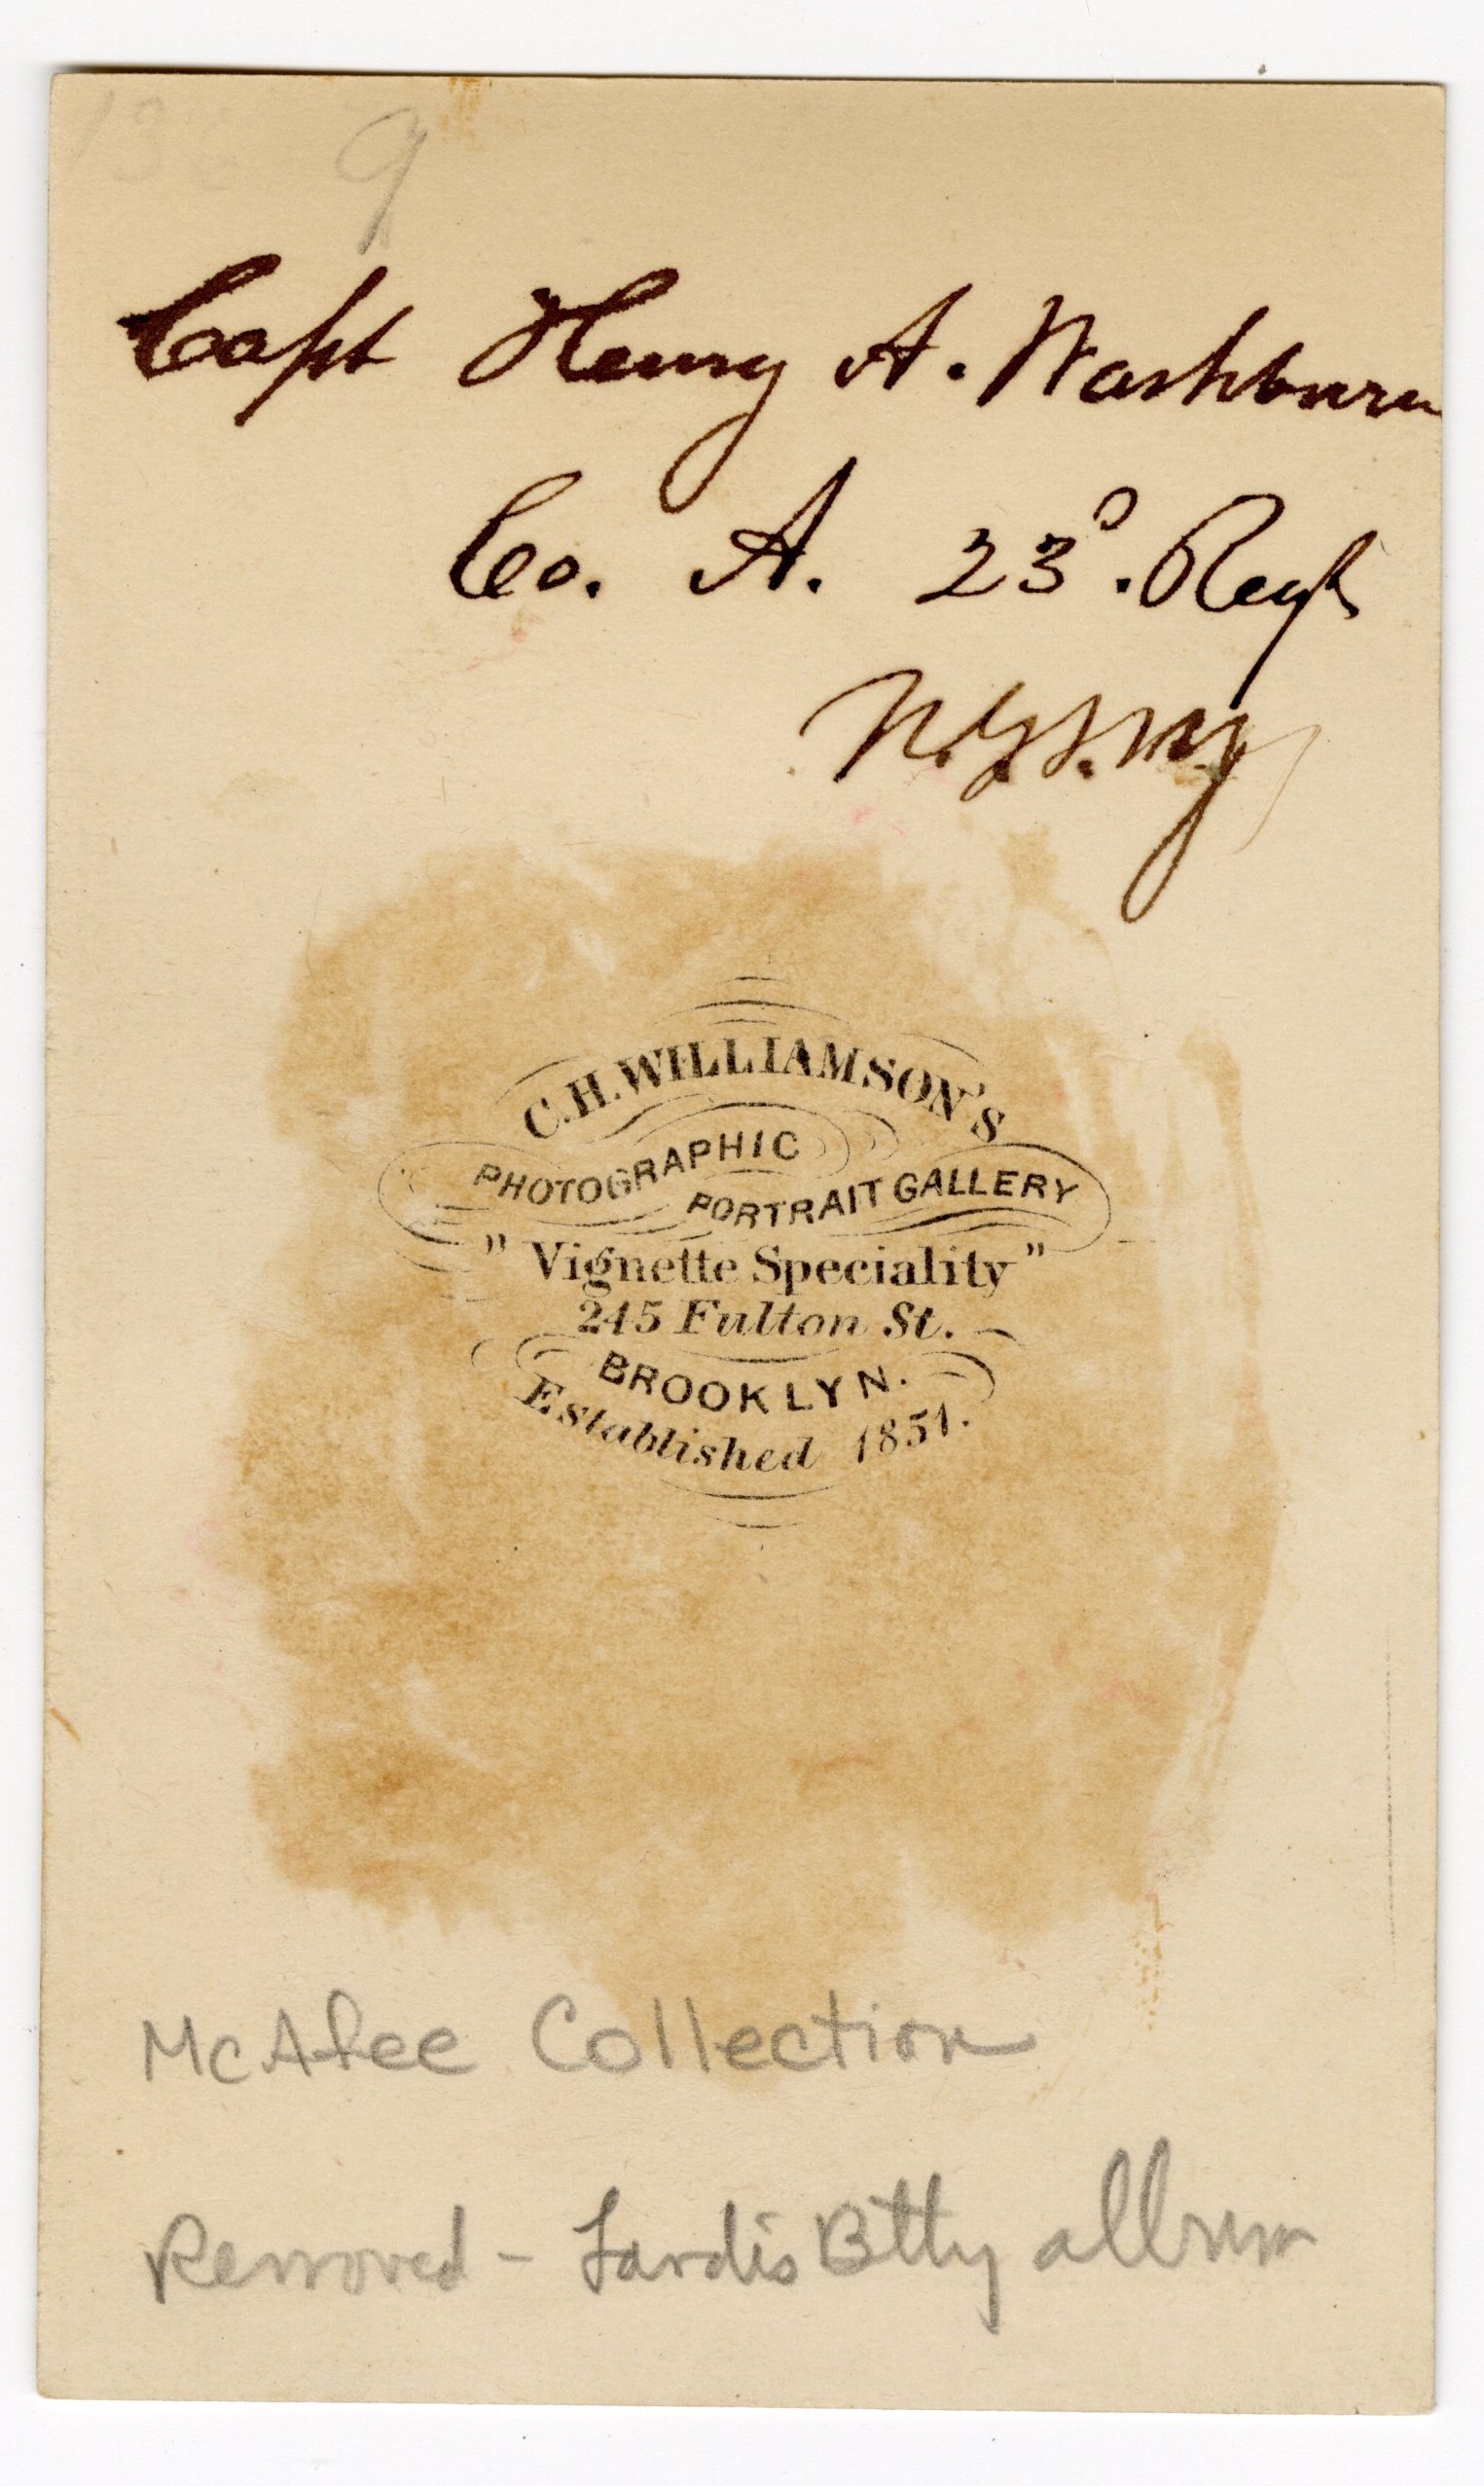 9
Capt Henry A. Washburn
Co. A. 23d. Regt
N.G.S.N.Y
C.H. WILLIAMSON'S
PHOTOGRAPHIC
PORTRAIT GALLERY
" Vignette Speciality "
245 Fulton St.
BROOKLYN.
Established 1851.
McAfee Collection
Removed - Landis Btty album